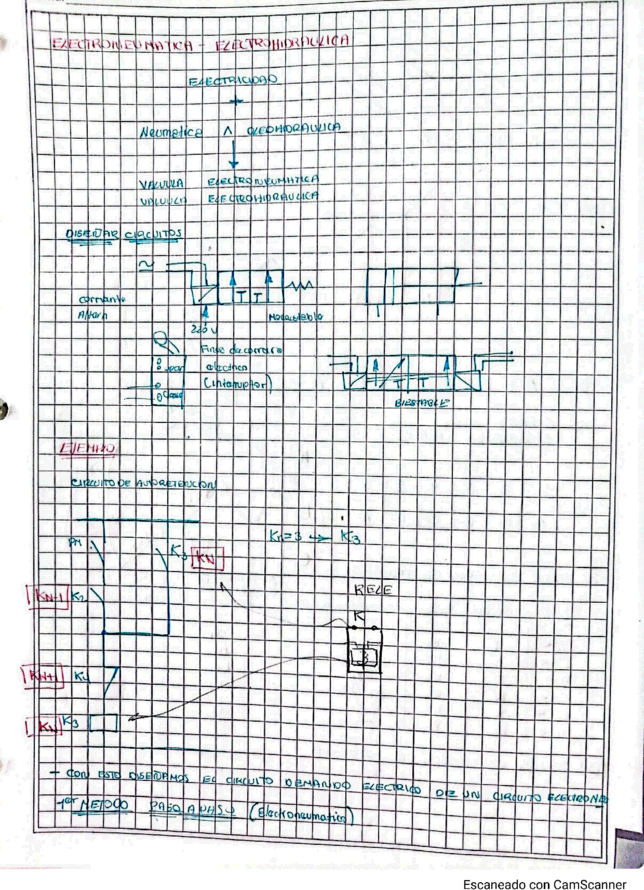 ELECTRONEUMATICA - ELECTROHIDRAULICA
ELECTRICIDAD
+
Neumatica ∧ OLEOHIDRAULICA
VALVULA ELECTRONEUMATICA
VALVULA ELECTROHIDRAULICA
DISEÑAR CIRCUITOS
~
T T
corriente
Altern
Monoestable
220 V
Final de carrera
electrico
(interruptor)
T T
BIESTABLE
EJEMPLO
CIRCUITO DE AUTORETENCION
PM
K3 KN
Kn=3 → K3
KN-1 K2
RELE
K
3
KN+1 K4
KN K3
- CON ESTO DISEÑAMOS EL CIRCUITO DEMANDO ELECTRICO DE UN CIRCUITO ELECTRONE
1er METODO PASO A PASO (Electroneumatico)
Escaneado con CamScanner